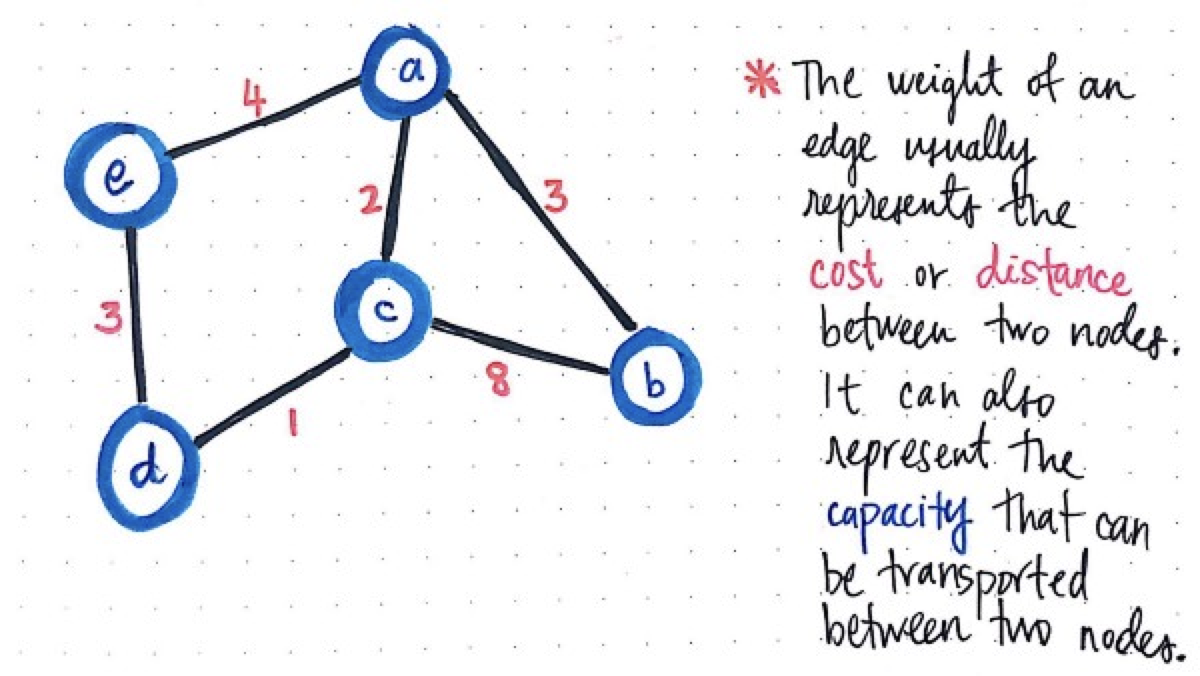 a
4
e
2
3
c
3
8
b
1
d
* The weight of an
edge usually
represents the
cost or distance
between two nodes.
It can also
represent the
capacity that can
be transported
between two nodes.